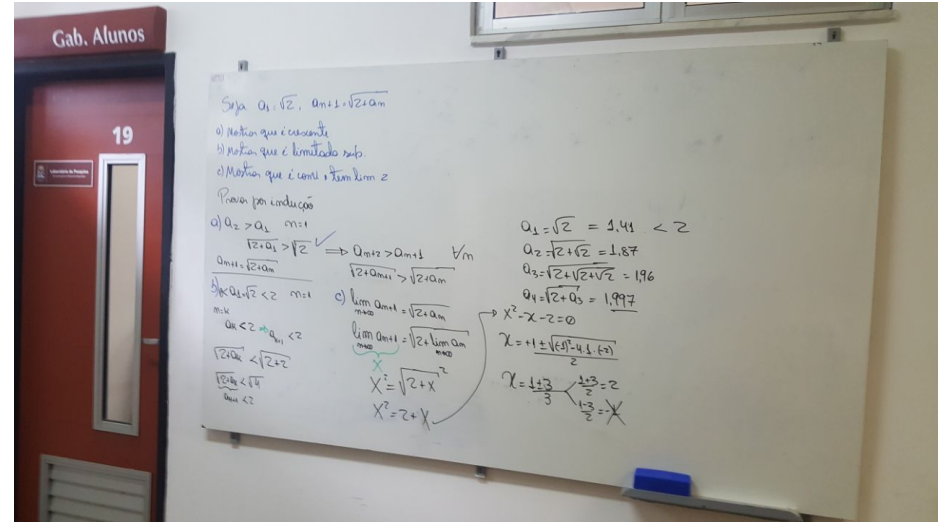 Gab. Alunos
19
Laboratório de Pesquisa
Seja a₁=√2, aₙ₊₁=√(2+aₙ)
a) Mostrar que é crescente
b) Mostrar que é limitada sup.
c) Mostrar que é conv. e tem lim 2
Prova por indução
a) a₂ > a₁ n=1
√(2+a₁) > √2 ✓ ⇒ aₙ₊₂ > aₙ₊₁ ∀n
aₙ₊₁=√(2+aₙ) √(2+aₙ₊₁) > √(2+aₙ)
b) a₁=√2 < 2 n=1
n=k
aₖ < 2 ⇒ aₖ₊₁ < 2
√(2+aₖ) < √(2+2)
√(2+aₖ) < √4
aₖ₊₁ < 2
c) lim aₙ₊₁ = √(2+aₙ)
n→∞
lim aₙ₊₁ = √(2+lim aₙ)
n→∞ n→∞
x
x² = √(2+x)²
x² = 2+x
a₁=√2 = 1,41 < 2
a₂=√(2+√2) = 1,87
a₃=√(2+√(2+√2)) = 1,96
a₄=√(2+a₃) = 1,997
→ x²-x-2=0
x = +1±√((-1)²-4.1.(-2))
2
x = 1±3
3
1+3
2
=2
1-3
2
=-1